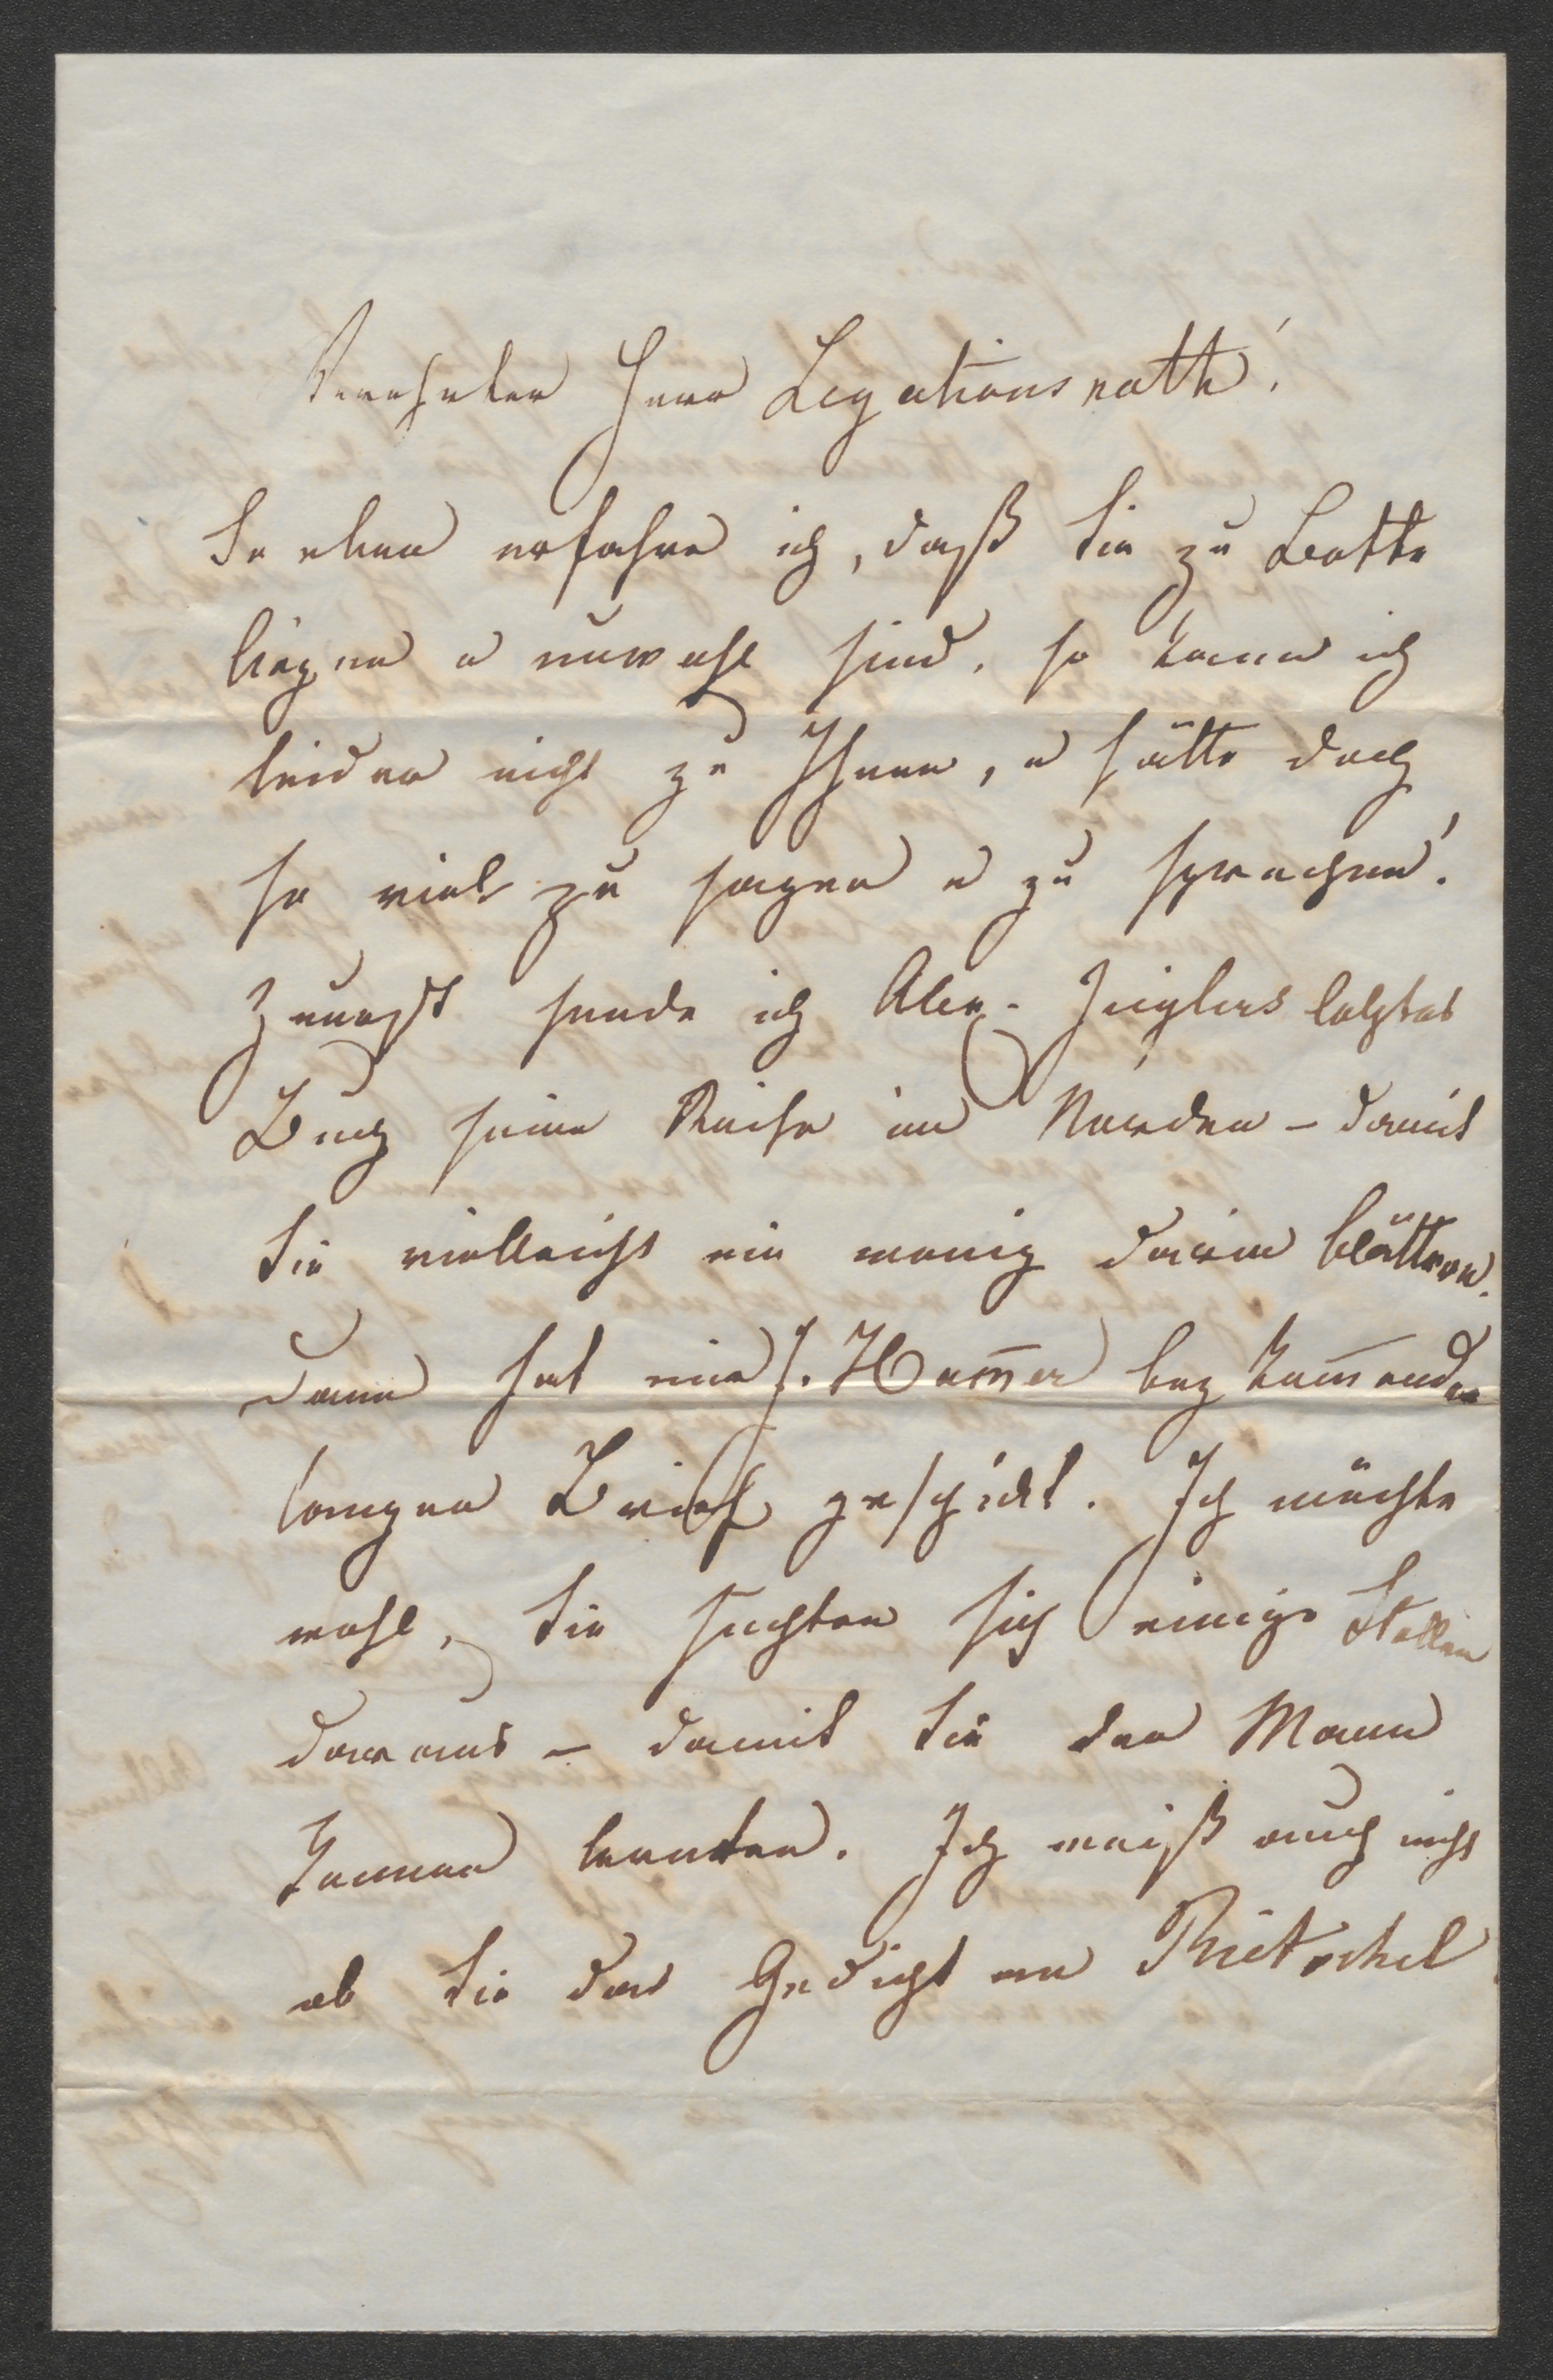 Verehrter Herr Legationsrath!
So eben erfahre ich, daß Sie zu Bette
liegen u unwohl sind. so kann ich
leider nicht zu Ihnen, u hätte doch
so viel zu sagen u zu sprechen!
Zunächst sende ich Alex. Zieglers letztes
Buch seine Reise im Norden – damit
Sie vielleicht ein wenig darin blättern.
Dann hat mir J. Ham̅er bey kom̅enden
langen Brief geschickt. Ich möchte
wohl, Sie suchten sich einige Stellen
daraus – damit Sie den Mann
kennen lernten. Ich weiß auch nicht
ob Sie das Gedicht an Rietschel